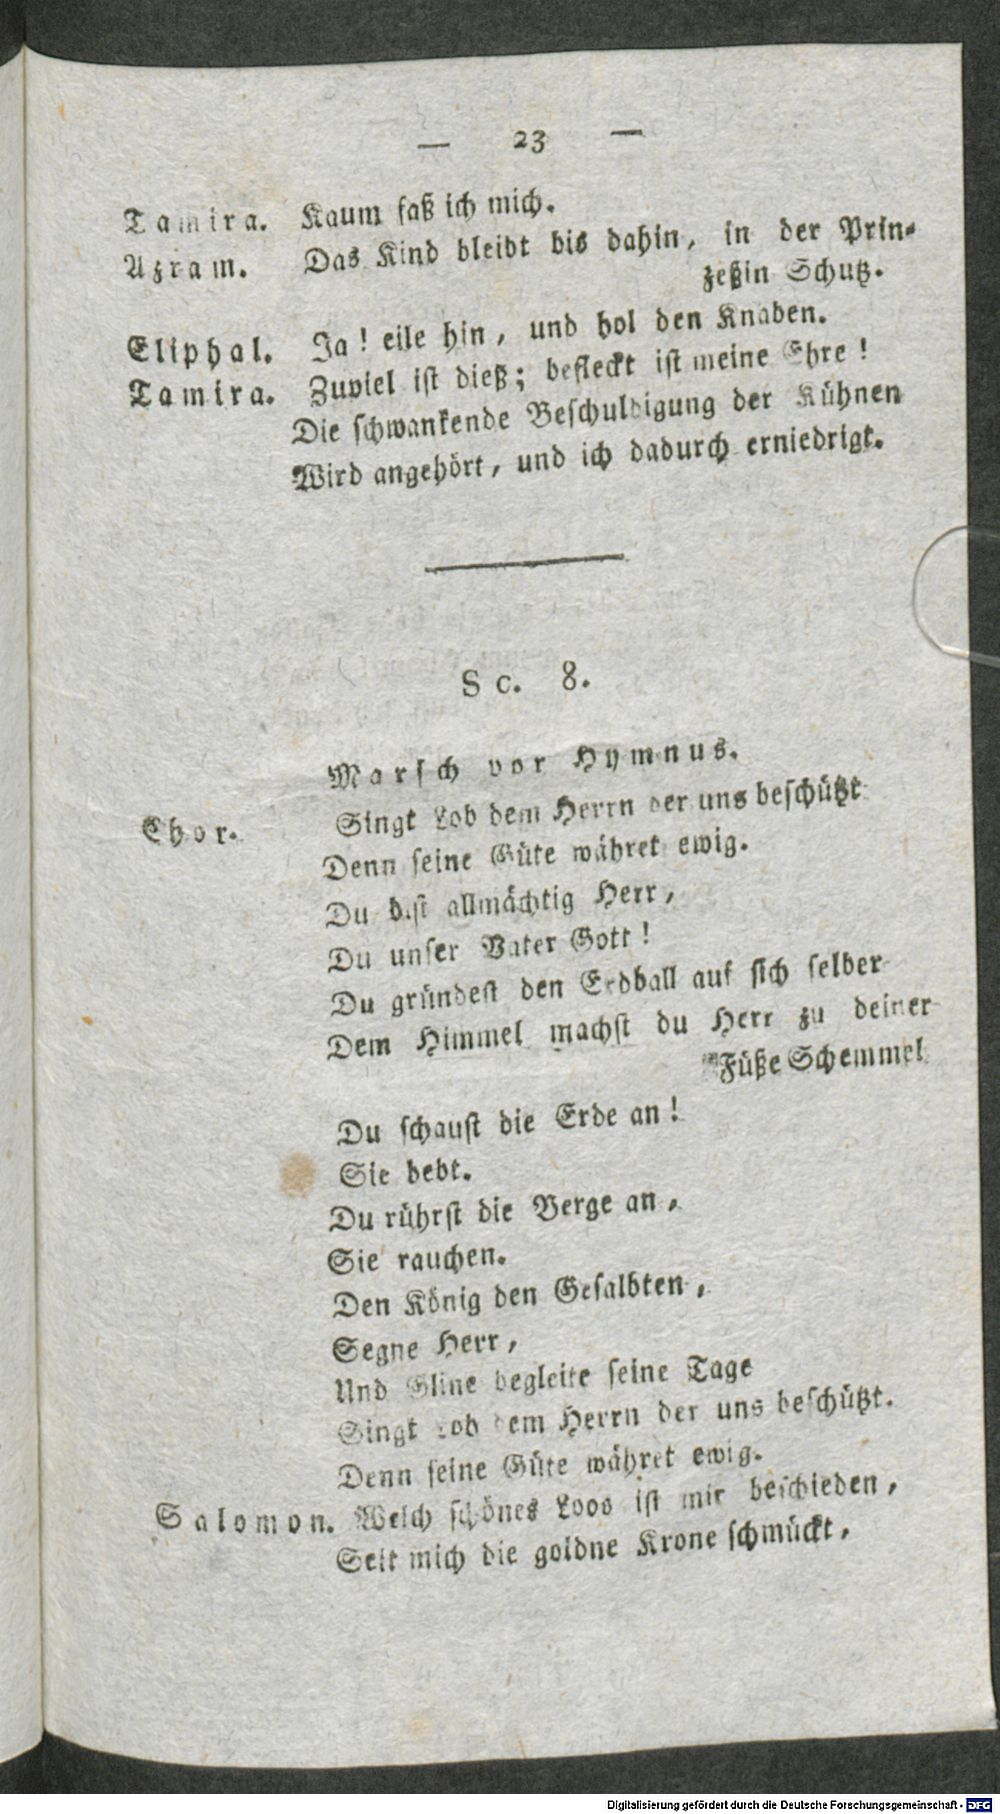 — 23 —
Tamira. Kaum faß ich mich.
Azram. Das Kind bleibt bis dahin, in der Prin-
zeßin Schutz.
Eliphal. Ja! eile hin, und hol den Knaben.
Tamira. Zuviel ist dieß; befleckt ist meine Ehre!
Die schwankende Beschuldigung der Kühnen
Wird angehört, und ich dadurch erniedrigt.
Sc. 8.
Marsch vor Hymnus.
Chor. Singt Lob dem Herrn der uns beschützt
Denn seine Güte währet ewig.
Du bist allmächtig Herr,
Du unser Vater Gott!
Du gründest den Erdball auf sich selber
Dem Himmel machst du Herr zu deiner
Füße Schemmel
Du schaust die Erde an!
Sie bebt.
Du rührst die Berge an,
Sie rauchen.
Den König den Gesalbten,
Segne Herr,
Und Gline begleite seine Tage
Singt Lob dem Herrn der uns beschützt.
Denn seine Güte währet ewig.
Salomon. Welch schönes Loos ist mir beschieden,
Seit mich die goldne Krone schmückt,
Digitalisierung gefördert durch die Deutsche Forschungsgemeinschaft - DFG